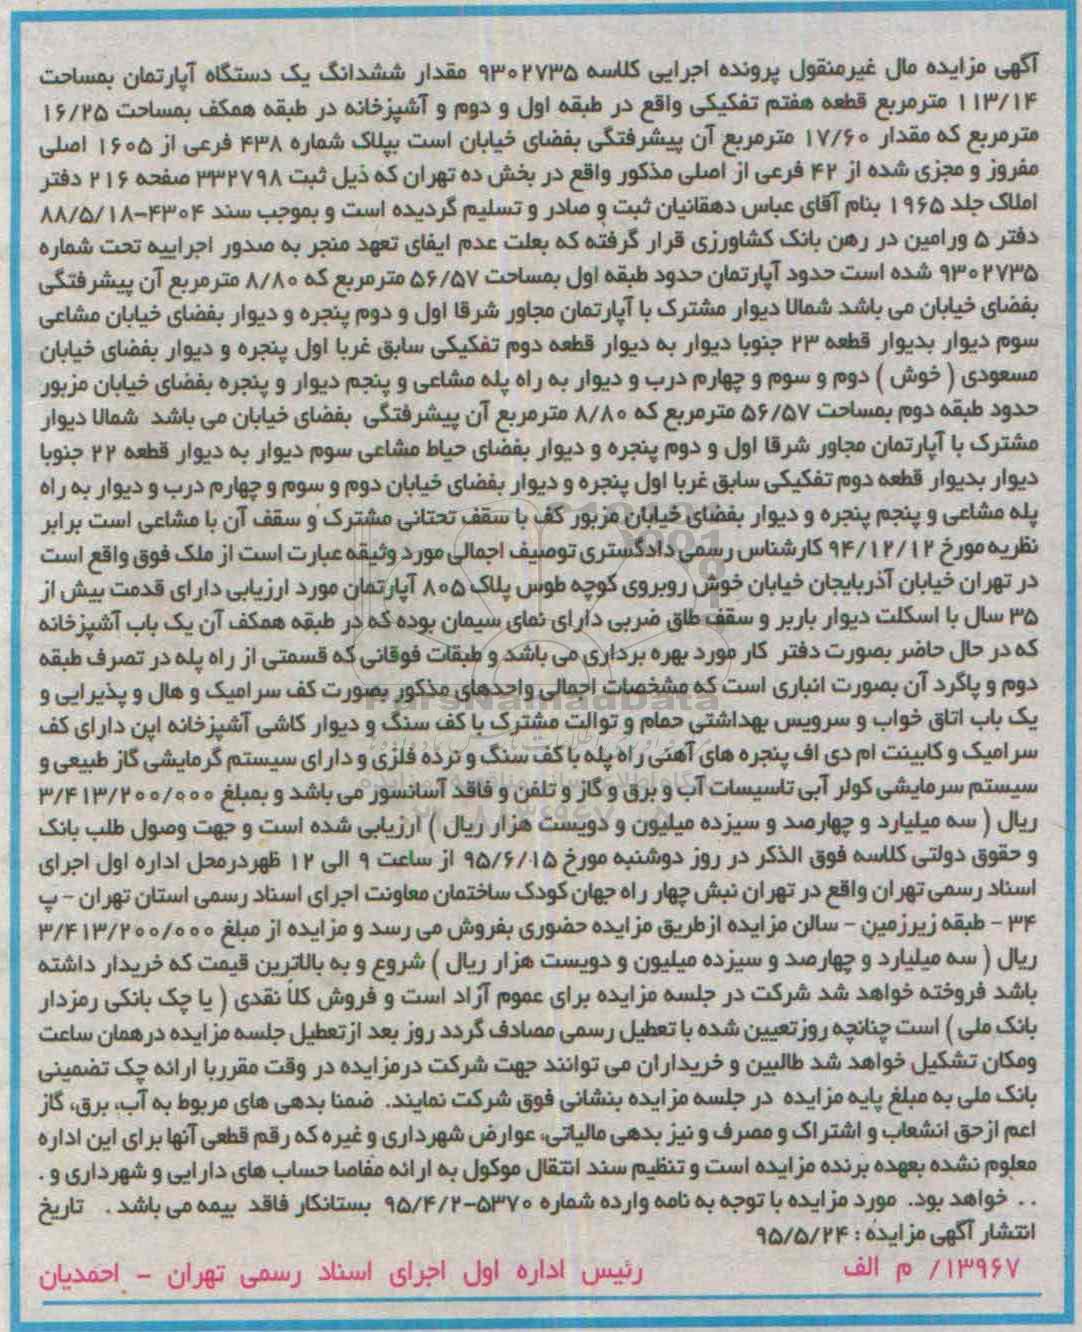 آگهی مزایده مال غیرمنقول پرونده اجرایی کلاسه ۹۳۰۲۷۳۵ مقدار ششدانگ یک دستگاه آپارتمان بمساحت
۱۱۳/۱۴ مترمربع قطعه هفتم تفکیکی واقع در طبقه اول و دوم و آشپزخانه در طبقه همکف بمساحت ۱۶/۲۵
مترمربع که مقدار ۱۷/۶۰ مترمربع آن پیشرفتگی بفضای خیابان است بپلاک شماره ۴۳۸ فرعی از ۱۶۰۵ اصلی
مفروز و مجزی شده از ۴۲ فرعی از اصلی مذکور واقع در بخش ده تهران که ذیل ثبت ۳۳۲۷۹۸ صفحه ۲۱۶ دفتر
املاک جلد ۱۹۶۵ بنام آقای عباس دهقانیان ثبت و صادر و تسلیم گردیده است و بموجب سند ۴۳۰۴-۸۸/۵/۱۸
دفتر ۵ ورامین در رهن بانک کشاورزی قرار گرفته که بعلت عدم ایفای تعهد منجر به صدور اجراییه تحت شماره
۹۳۰۲۷۳۵ شده است حدود آپارتمان حدود طبقه اول بمساحت ۵۶/۵۷ مترمربع که ۸/۸۰ مترمربع آن پیشرفتگی
بفضای خیابان می باشد شمالا دیوار مشترک با آپارتمان مجاور شرقا اول و دوم پنجره و دیوار بفضای خیابان مشاعی
سوم دیوار بدیوار قطعه ۲۳ جنوبا دیوار به دیوار قطعه دوم تفکیکی سابق غربا اول پنجره و دیوار بفضای خیابان
مسعودی ( خوش ) دوم و سوم و چهارم درب و دیوار به راه پله مشاعی و پنجم دیوار و پنجره بفضای خیابان مزبور
حدود طبقه دوم بمساحت ۵۶/۵۷ مترمربع که ۸/۸۰ مترمربع آن پیشرفتگی بفضای خیابان می باشد شمالا دیوار
مشترک با آپارتمان مجاور شرقا اول و دوم پنجره و دیوار بفضای حیاط مشاعی سوم دیوار به دیوار قطعه ۲۲ جنوبا
دیوار بدیوار قطعه دوم تفکیکی سابق غربا اول پنجره و دیوار بفضای خیابان دوم و سوم و چهارم درب و دیوار به راه
پله مشاعی و پنجم پنجره و دیوار بفضای خیابان مزبور کف با سقف تحتانی مشترک و سقف آن با مشاعی است برابر
نظریه مورخ ۹۴/۱۲/۱۲ کارشناس رسمی دادگستری توصیف اجمالی مورد وثیقه عبارت است از ملک فوق واقع است
در تهران خیابان آذربایجان خیابان خوش روبروی کوچه طوس پلاک ۸۰۵ آپارتمان مورد ارزیابی دارای قدمت بیش از
۳۵ سال با اسکلت دیوار باربر و سقف طاق ضربی دارای نمای سیمان بوده که در طبقه همکف آن یک باب آشپزخانه
که در حال حاضر بصورت دفتر کار مورد بهره برداری می باشد و طبقات فوقانی که قسمتی از راه پله در تصرف طبقه
دوم و پاگرد آن بصورت انباری است که مشخصات اجمالی واحدهای مذکور بصورت کف سرامیک و هال و پذیرایی و
یک باب اتاق خواب و سرویس بهداشتی حمام و توالت مشترک با کف سنگ و دیوار کاشی آشپزخانه اپن دارای کف
سرامیک و کابینت ام دی اف پنجره های آهنی راه پله با کف سنگ و نرده فلزی و دارای سیستم گرمایشی گاز طبیعی و
سیستم سرمایشی کولر آبی تاسیسات آب و برق و گاز و تلفن و فاقد آسانسور می باشد و بمبلغ ۳/۴۱۳/۲۰۰/۰۰۰
ریال ( سه میلیارد و چهارصد و سیزده میلیون و دویست هزار ریال ) ارزیابی شده است و جهت وصول طلب بانک
و حقوق دولتی کلاسه فوق الذکر در روز دوشنبه مورخ ۹۵/۶/۱۵ از ساعت ۹ الی ۱۲ ظهردرمحل اداره اول اجرای
اسناد رسمی تهران واقع در تهران نبش چهار راه جهان کودک ساختمان معاونت اجرای اسناد رسمی استان تهران - پ
۳۴ - طبقه زیرزمین - سالن مزایده ازطریق مزایده حضوری بفروش می رسد و مزایده از مبلغ ۳/۴۱۳/۲۰۰/۰۰۰
ریال ( سه میلیارد و چهارصد و سیزده میلیون و دویست هزار ریال ) شروع و به بالاترین قیمت که خریدار داشته
باشد فروخته خواهد شد شرکت در جلسه مزایده برای عموم آزاد است و فروش کلاً نقدی ( یا چک بانکی رمزدار
بانک ملی ) است چنانچه روزتعیین شده با تعطیل رسمی مصادف گردد روز بعد ازتعطیل جلسه مزایده درهمان ساعت
ومکان تشکیل خواهد شد طالبین و خریداران می توانند جهت شرکت درمزایده در وقت مقرربا ارائه چک تضمینی
بانک ملی به مبلغ پایه مزایده در جلسه مزایده بنشانی فوق شرکت نمایند. ضمنا بدهی های مربوط به آب، برق، گاز
اعم ازحق انشعاب و اشتراک و مصرف و نیز بدهی مالیاتی، عوارض شهرداری و غیره که رقم قطعی آنها برای این اداره
معلوم نشده بعهده برنده مزایده است و تنظیم سند انتقال موکول به ارائه مفاصا حساب های دارایی و شهرداری و .
. . خواهد بود. مورد مزایده با توجه به نامه وارده شماره ۵۳۷۰-۹۵/۴/۲ بستانکار فاقد بیمه می باشد . تاریخ
انتشار آگهی مزایده : ۹۵/۵/۲۴
۱۳۹۶۷/ م الف رئیس اداره اول اجرای اسناد رسمی تهران - احمدیان
ParsNamadData